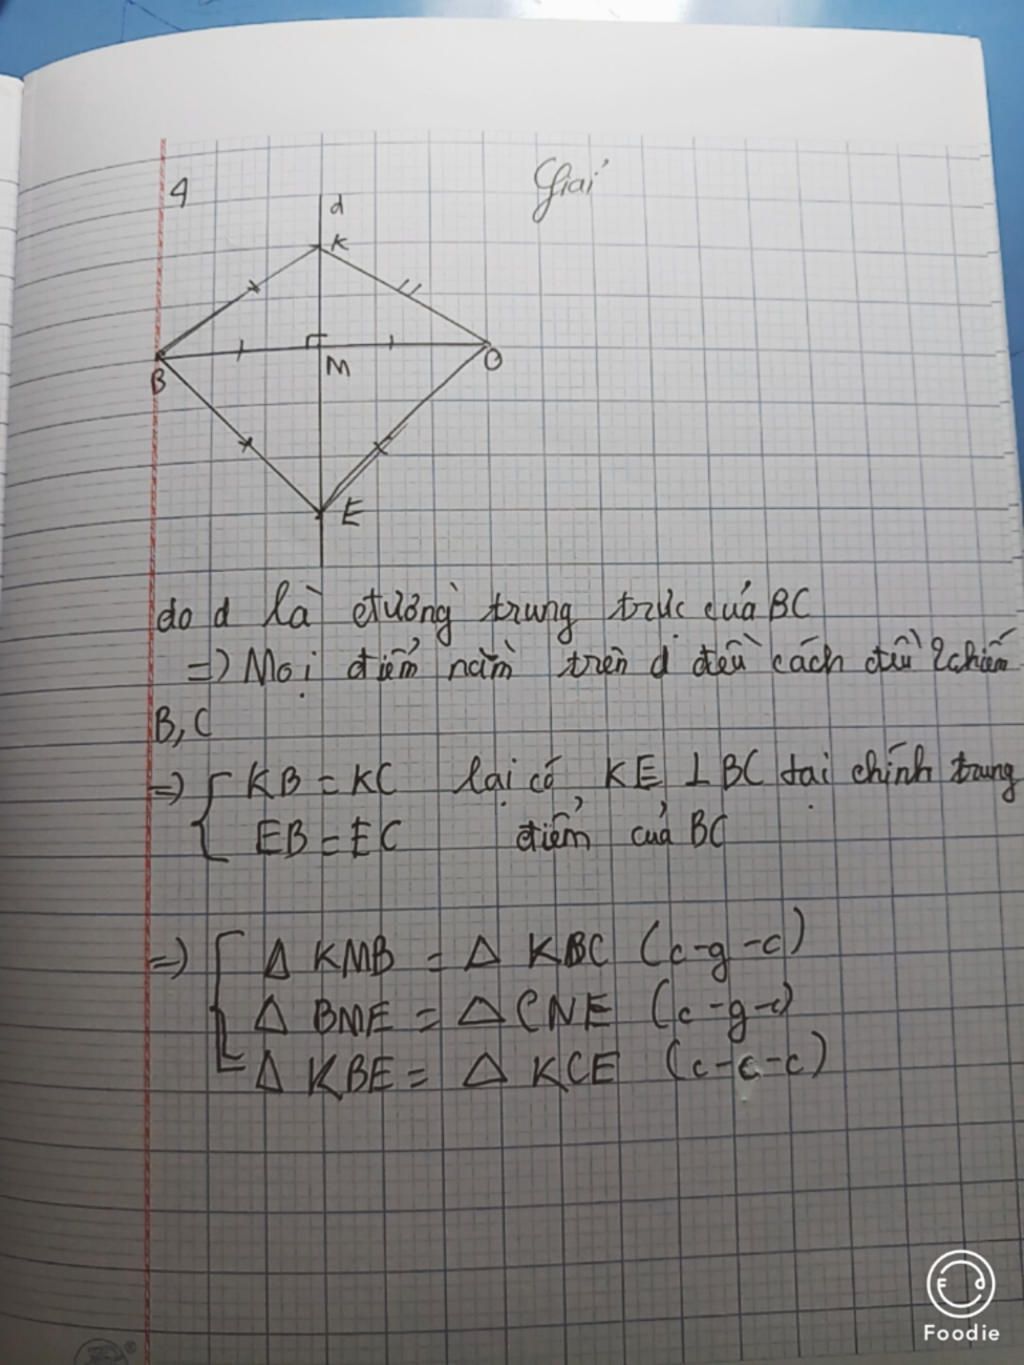 4
Giải
d
K
M
B
C
E
do d là đường trung trực của BC
=> Mọi điểm nằm trên d đều cách đều 2 điểm
B, C
=> { KB = KC lại có KE ⊥ BC tại chính trung
EB = EC điểm của BC
=> [ Δ KMB = Δ KBC (c-g-c)
Δ BME = Δ CNE (c-g-c)
Δ KBE = Δ KCE (c-c-c)
Foodie